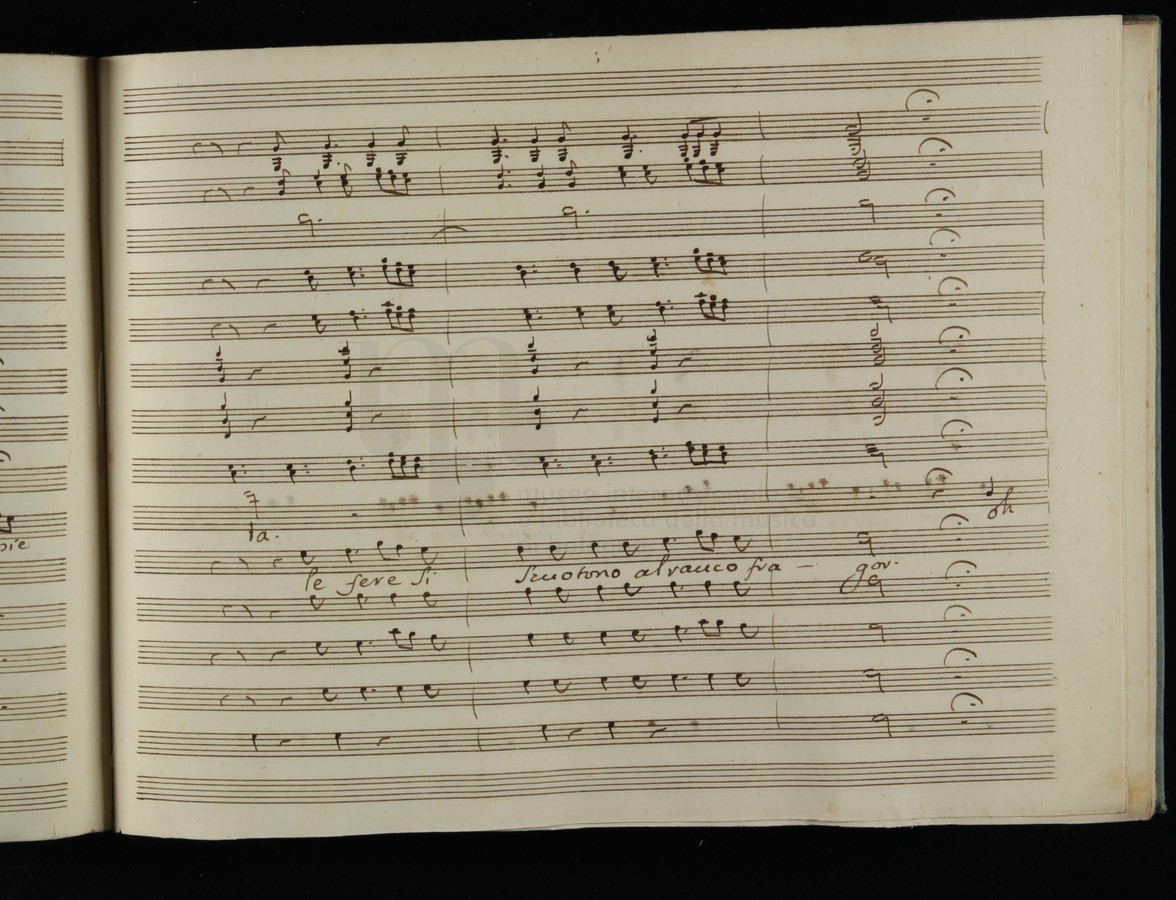 pie
la.
oh
le fere si scuotono al rauco fra - gor.
museo internazionale
e biblioteca della musica